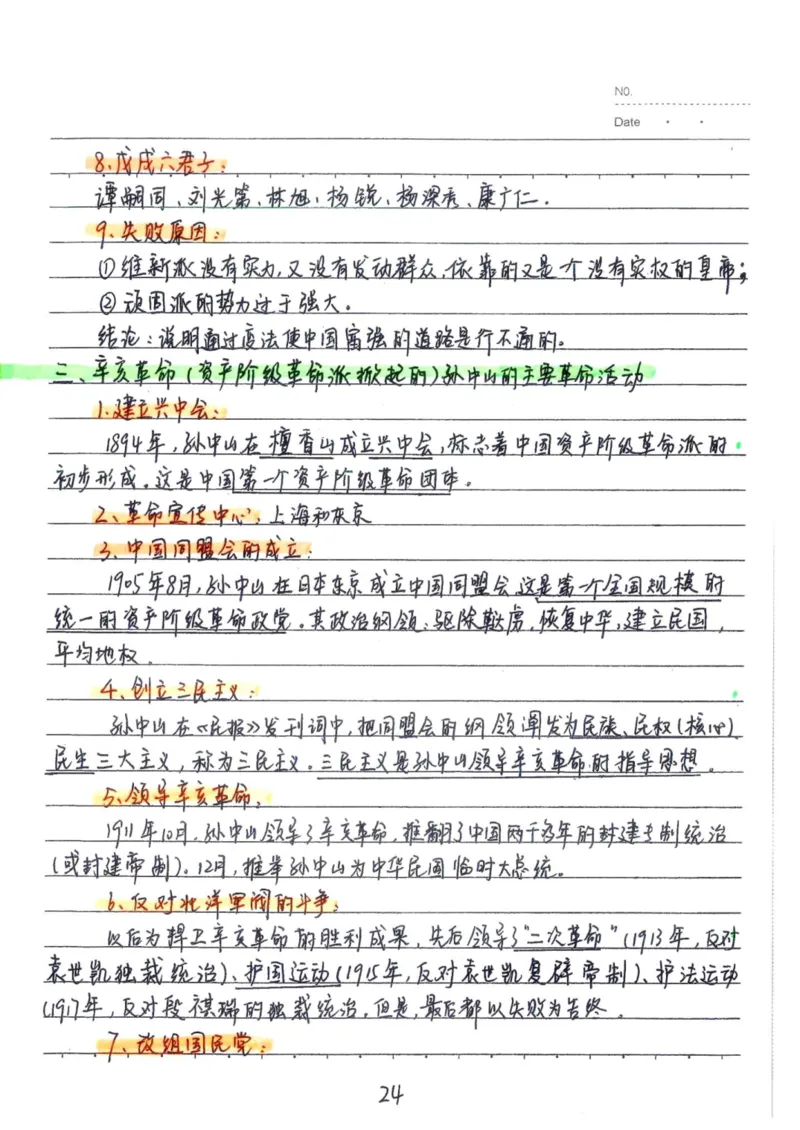 NO.
Date
8、戊戌六君子：
谭嗣同、刘光第、林旭、杨锐、杨深秀、康广仁.
9、失败原因：
①维新派没有实力,又没有发动群众,依靠的又是个没有实权的皇帝；
②顽固派的势力过于强大。
结论：说明通过变法使中国富强的道路是行不通的。
三、辛亥革命(资产阶级革命派掀起的)孙中山的主要革命活动
1、建立兴中会：
1894年,孙中山在檀香山成立兴中会,标志着中国资产阶级革命派的
初步形成。这是中国第一个资产阶级革命团体。
2、革命宣传中心：上海和东京
3、中国同盟会的成立：
1905年8月,孙中山在日本东京成立中国同盟会.这是第一个全国规模的
统一的资产阶级革命政党。其政治纲领：驱除鞑虏,恢复中华,建立民国,
平均地权.
4、创立三民主义：
孙中山在《民报》发刊词中,把同盟会的纲领阐发为民族、民权(核心)
民生三大主义,称为三民主义。三民主义是孙中山领导辛亥革命的指导思想。
5、领导辛亥革命：
1911年10月,孙中山领导了辛亥革命,推翻了中国两千多年的封建专制统治
(或封建帝制)。12月,推举孙中山为中华民国临时大总统。
6、反对北洋军阀的斗争：
以后为捍卫辛亥革命的胜利成果,先后领导了"二次革命"(1913年,反对
袁世凯独裁统治)、护国运动(1915年,反对袁世凯复辟帝制)、护法运动
(1917年,反对段祺瑞的独裁统治,但是,最后都以失败为告终.
7、改组国民党：
24